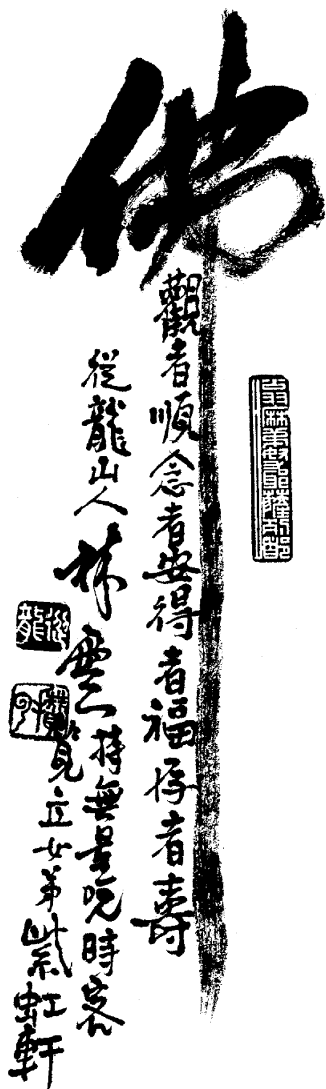 佛
觀者順念者安得者福存者壽
從龍山人林雲持無量咒時客
立女弟紫虹軒